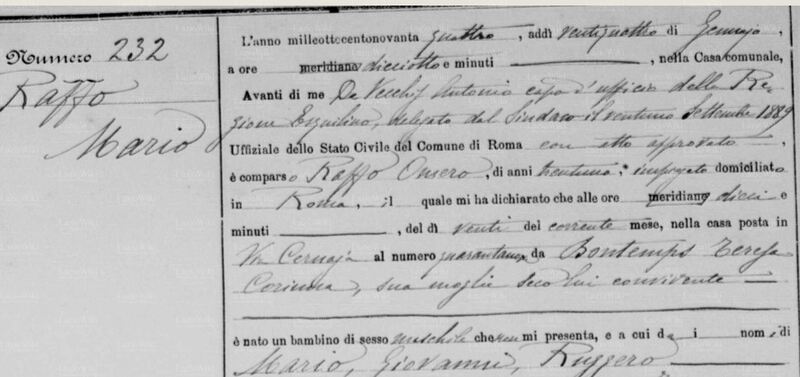 Numero 232
Raffo
Mario
L'anno milleottocentonovanta quattro, addì ventiquattro di Gennajo,
a ore meridiane diciotto e minuti, nella Casa comunale,
Avanti di me De Vecchis Antonio capo d'ufficio della Re-
gione Esquilino, delegato dal Sindaco il ventuno Settembre 1889
Uffiziale dello Stato Civile del Comune di Roma con atto approvato
è comparso Raffo Omero, di anni trentuno, impiegato domiciliato
in Roma, il quale mi ha dichiarato che alle ore meridiane dieci e
minuti, del dì venti del corrente mese, nella casa posta in
Via Cernaja al numero da Bontemps Teresa
Corinna, sua moglie seco lui convivente
è nato un bambino di sesso maschile che non mi presenta, e a cui dà i nomi di
Mario, Giovanni, Ruggero